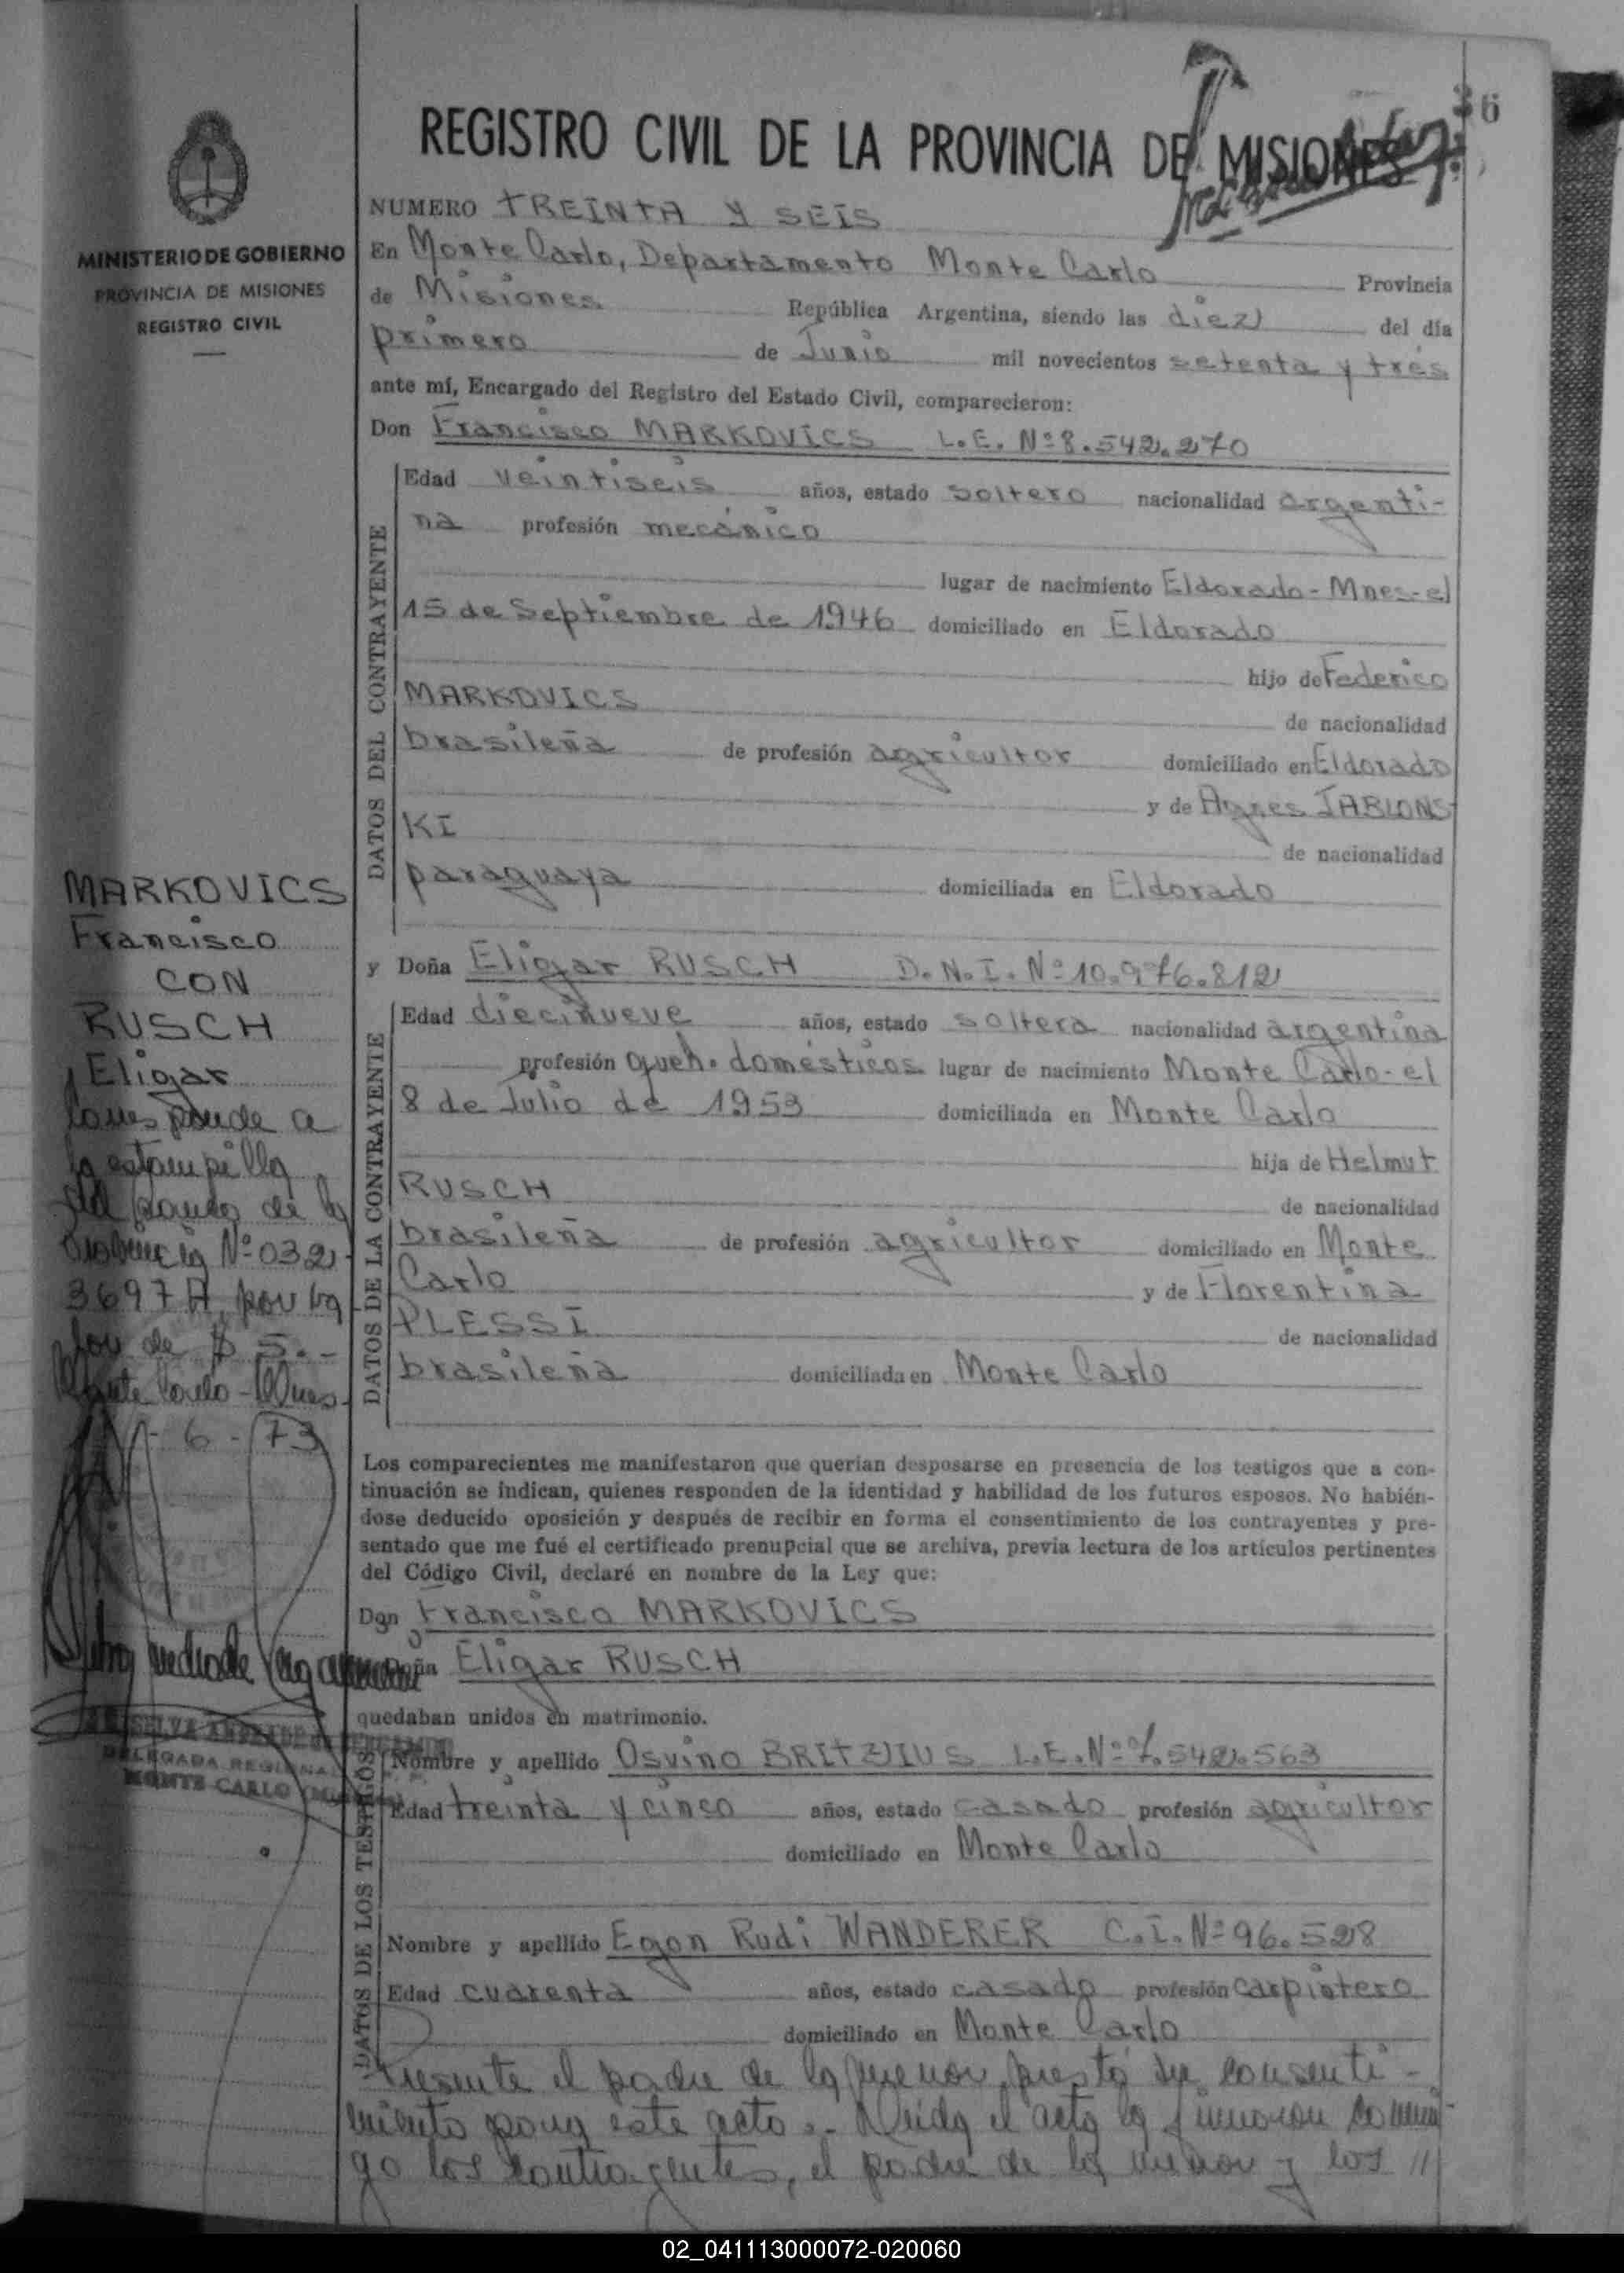 36
REGISTRO CIVIL DE LA PROVINCIA DE MISIONES
MINISTERIO DE GOBIERNO
PROVINCIA DE MISIONES
REGISTRO CIVIL
NUMERO TREINTA Y SEIS
En Monte Carlo, Departamento Monte Carlo Provincia
de Misiones República Argentina, siendo las diez del día
primero de Junio mil novecientos setenta y tres
ante mí, Encargado del Registro del Estado Civil, comparecieron:
Don Francisco MARKOVICS L.E. Nº 8.542.270
DATOS DEL CONTRAYENTE
Edad veintiseis años, estado soltero nacionalidad argenti-
na profesión mecánico
lugar de nacimiento Eldorado-Mnes-el
15 de Septiembre de 1946 domiciliado en Eldorado
hijo de Federico
MARKOVICS de nacionalidad
brasileña de profesión agricultor domiciliado en Eldorado
y de Agnes JABLONS
KI de nacionalidad
paraguaya domiciliada en Eldorado
y Doña Eligar RUSCH D.N.I. Nº 10.976.812
DATOS DE LA CONTRAYENTE
Edad diecinueve años, estado soltera nacionalidad argentina
profesión queh. domésticos lugar de nacimiento Monte Carlo-el
8 de Julio de 1953 domiciliada en Monte Carlo
hija de Helmut
RUSCH de nacionalidad
brasileña de profesión agricultor domiciliado en Monte
Carlo y de Florentina
PLESSI de nacionalidad
brasileña domiciliada en Monte Carlo
MARKOVICS
Francisco
CON
RUSCH
Eligar
Corresponde a
la estampilla
del Banco de la
Provincia Nº 032
3697 A, por va
lor de $ 5.-
Monte Carlo-Mnes.
1-6-73
Los comparecientes me manifestaron que querían desposarse en presencia de los testigos que a con-
tinuación se indican, quienes responden de la identidad y habilidad de los futuros esposos. No habién-
dose deducido oposición y después de recibir en forma el consentimiento de los contrayentes y pre-
sentado que me fué el certificado prenupcial que se archiva, previa lectura de los artículos pertinentes
del Código Civil, declaré en nombre de la Ley que:
Don Francisco MARKOVICS
y Doña Eligar RUSCH
quedaban unidos en matrimonio.
SELVA ANDRADE de
DELEGADA REGIONAL
MONTE CARLO
DATOS DE LOS TESTIGOS
Nombre y apellido Osvino BRITZIUS L.E. Nº 7.542.563
Edad treinta y cinco años, estado casado profesión agricultor
domiciliado en Monte Carlo
Nombre y apellido Egon Rudi WANDERER C.I. Nº 96.528
Edad cuarenta años, estado casado profesión carpintero
domiciliado en Monte Carlo
Presente el padre de la menor, prestó su consenti-
miento para este acto.- Leída el acta la firmaron conmi-
go los contrayentes, el padre de la menor y los //
02_041113000072-020060